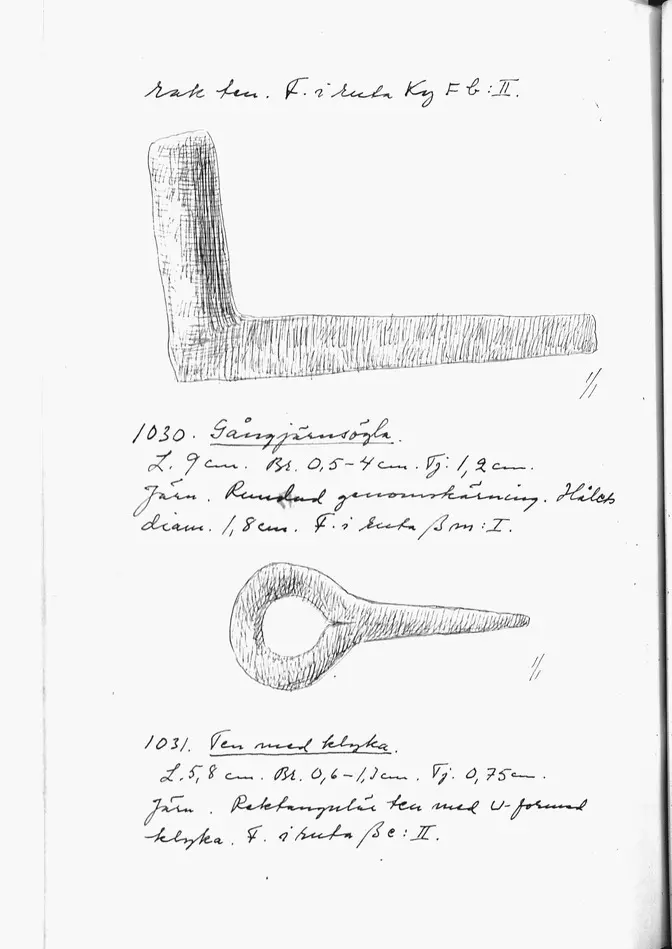 rak ten. F. i ruta Ky F b : II.
1/1
1030. Gångjärnsögla.
L. 9 cm. Br. 0,5-4 cm. Tj. 1,2 cm.
Järn. Rundad genomskärning. Hålets
diam. 1,8 cm. F. i ruta ß m : I.
1/1
1031. Ten med klyka.
L. 5,8 cm. Br. 0,6-1,3 cm. Tj. 0,75 cm.
Järn. Rektangulär ten med U-formad
klyka. F. i ruta ß c : II.